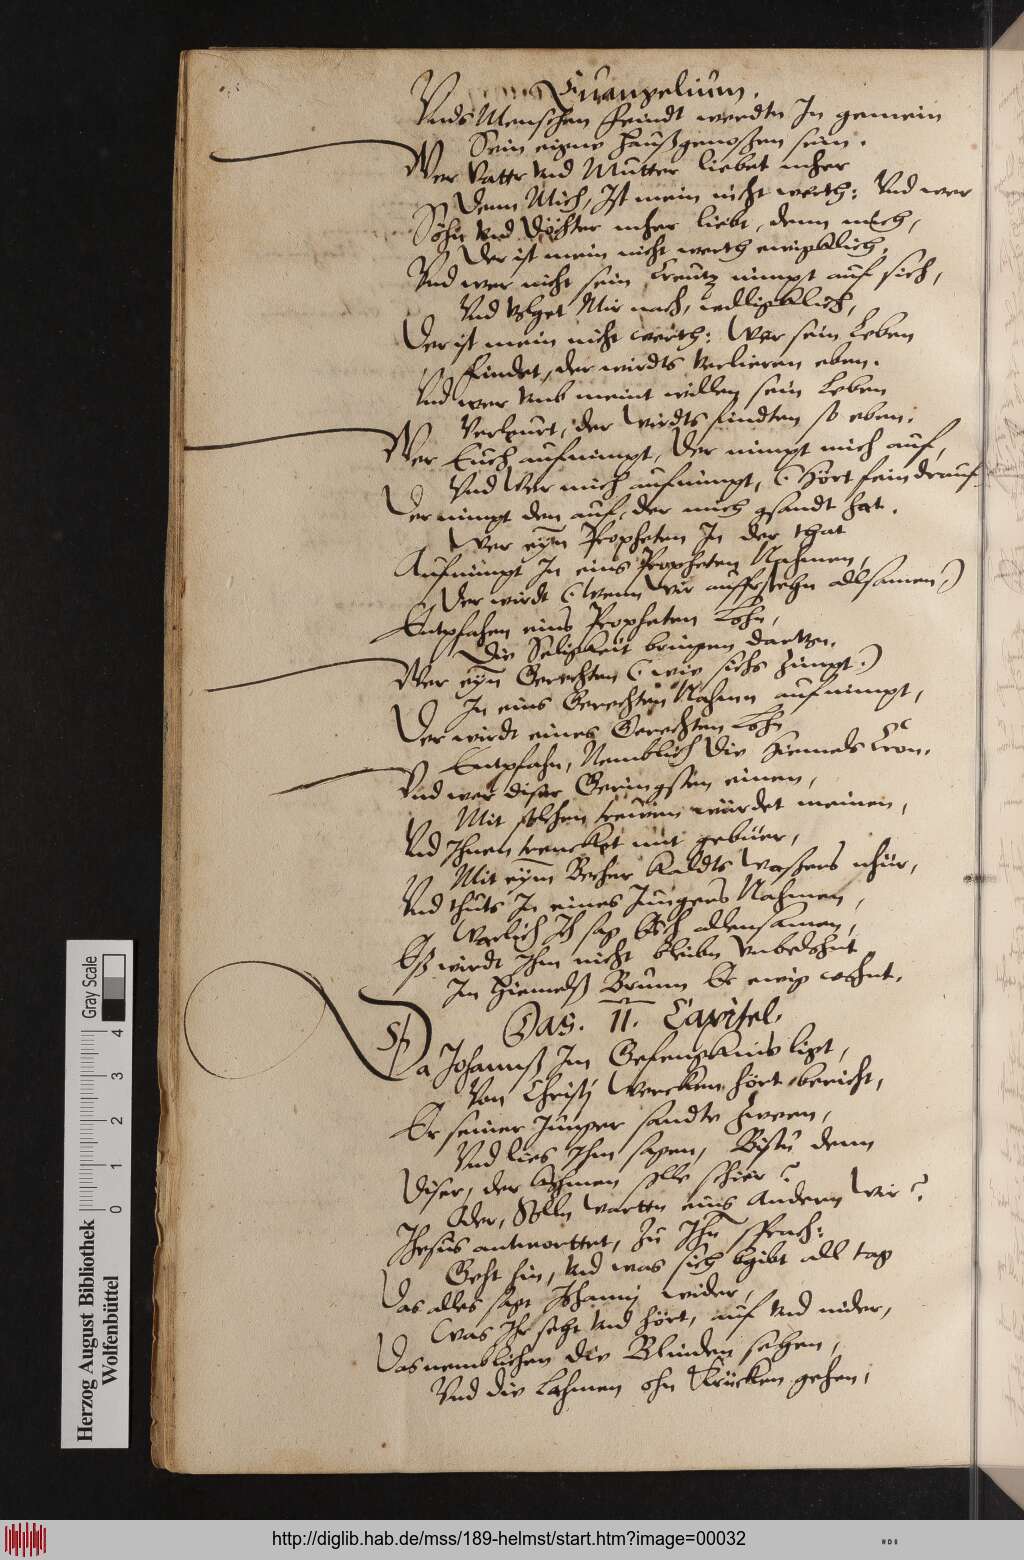 Euangelium.
Vnds Menschen feindt werdtn In gemein
Sein eigne Haußgenoßen sein.
Wer Vattr vnd Mutter liebet mher
Denn Mich, Ist mein nicht werth: Vnd wer
Söhn vnd Döchter mher liebt, denn mich,
Der ist mein nicht werth ewigklich.
Vnd wer nicht sein Creutz nimpt auf sich,
Vnd volget Mir nach, willigklich,
Der ist mein nicht werth: Wer sein Leben
findet, der wirdts verlieren eben.
Vnd wer vmb meint willen sein Leben
Verleurt, der wirdts findten so eben.
Wer Euch aufnimpt, der nimpt mich auf,
Vnd Wer mich aufnimpt, (Hört fein drauf
Der nimpt den auf, der mich gsandt hat.
Wer eym Propheten In der that
Aufnimpt In eins Propheten Nahmen,
Der wirdt (wenn Wir auffrstehn allsamen)
Entpfahen eins Propheten Lohn,
Die Seligkeit bringen dartzu.
Wer eyn Gerechten (wie sichs zimpt)
In eins Gerechten Nahmen aufnimpt,
Der wirdt eines Gerechten Lohn
Entpfahn, Nemblich die Himels Cron.
Vnd wer diser Geringsten einen,
Mit solchen trewen würdet meinen,
Vnd Ihnen trencket mit gebüer,
Mit eym Becher Kaldts Waßers nhür,
Vnd thuts In eines Jungers Nahmen,
Warlich Ich sag Euch allensamen,
Eß wirdt Ihm nicht bleibn vnbelohnt
Im Hiemelß Brunn Er ewig wohnt.
Das. 11. Capitel.
Da Johannß Im Gefengknis ligt,
Von Christi Wercken hört bericht,
Er seiner Jünger sandte Zween,
Vnd lies Ihm sagen, Bistu denn
Diser, der kohmen solle schier?
Oder, Solln wartten eins Andern Wir?
Jhesus antworttet, Zu Ihn sprach:
Geht hin, vnd was sich bgibt all tag
Das alles sagt Johanni wider,
Was Ihr seht vnd hört, auf vnd nider,
Das nemblichen die Blinden sehen,
Vnd die Lahmen ohn Krücken gehen,
Herzog August Bibliothek
Wolfenbüttel
0 1 2 3 4
Gray Scale
http://diglib.hab.de/mss/189-helmst/start.htm?image=00032